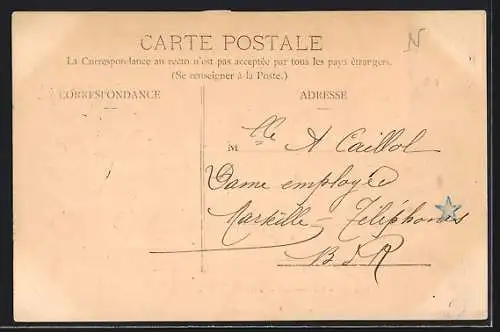 CARTE POSTALE
N
La Correspondance au recto n'est pas acceptée par tous les pays étrangers.
(Se renseigner à la Poste.)
CORRESPONDANCE
ADRESSE
Mlle A Caillol
Dame employée
Marseille - Téléphones
B d R